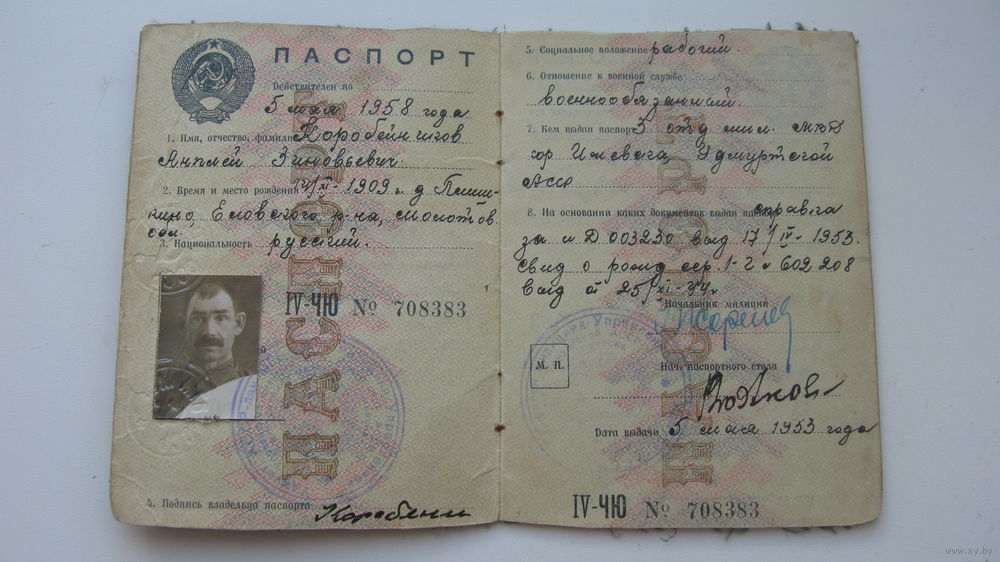 ПАСПОРТ
Действителен по
5 мая 1958 года
1. Имя, отчество, фамилия Коробейников
Зиновьевич.
2. Время и место рождения 1909 г. д.
Еловского р-на, Молотов.
обл.
3. Национальность русский.
IV-ЧЮ № 708383
4. Подпись владельца паспорта
ПАСПОРТ
5. Социальное положение рабочий.
6. Отношение к военной службе
военнообязанный.
7. Кем выдан паспорт 3 отд мил.
гор Ижевска, Удмуртской
Асср
8. На основании каких документов выдан паспорт справка
за № Д 003230 выд 17/IV-1953.
Свид о рожд сер. 1-г № 602208
выд 25/XI-44г
Начальник милиции
М. П.
Нач. паспортного стола
Дата выдачи 5 мая 1953 года
IV-ЧЮ № 708383
ПАСПОРТ
www.ay.by